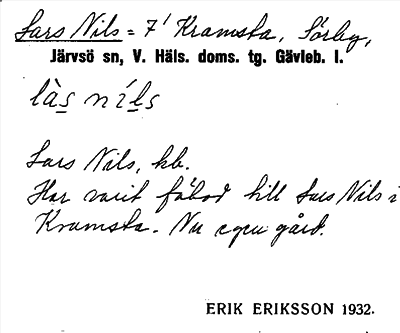 Lars Nils = 7¹ Kramsta, Sörby,
Järvsö sn, V. Häls. doms. tg. Gävleb. l.
làs níls
Lars Nils, hb.
Har varit fäbod till Lars Nils i
Kramsta. Nu egen gård.
ERIK ERIKSSON 1932.